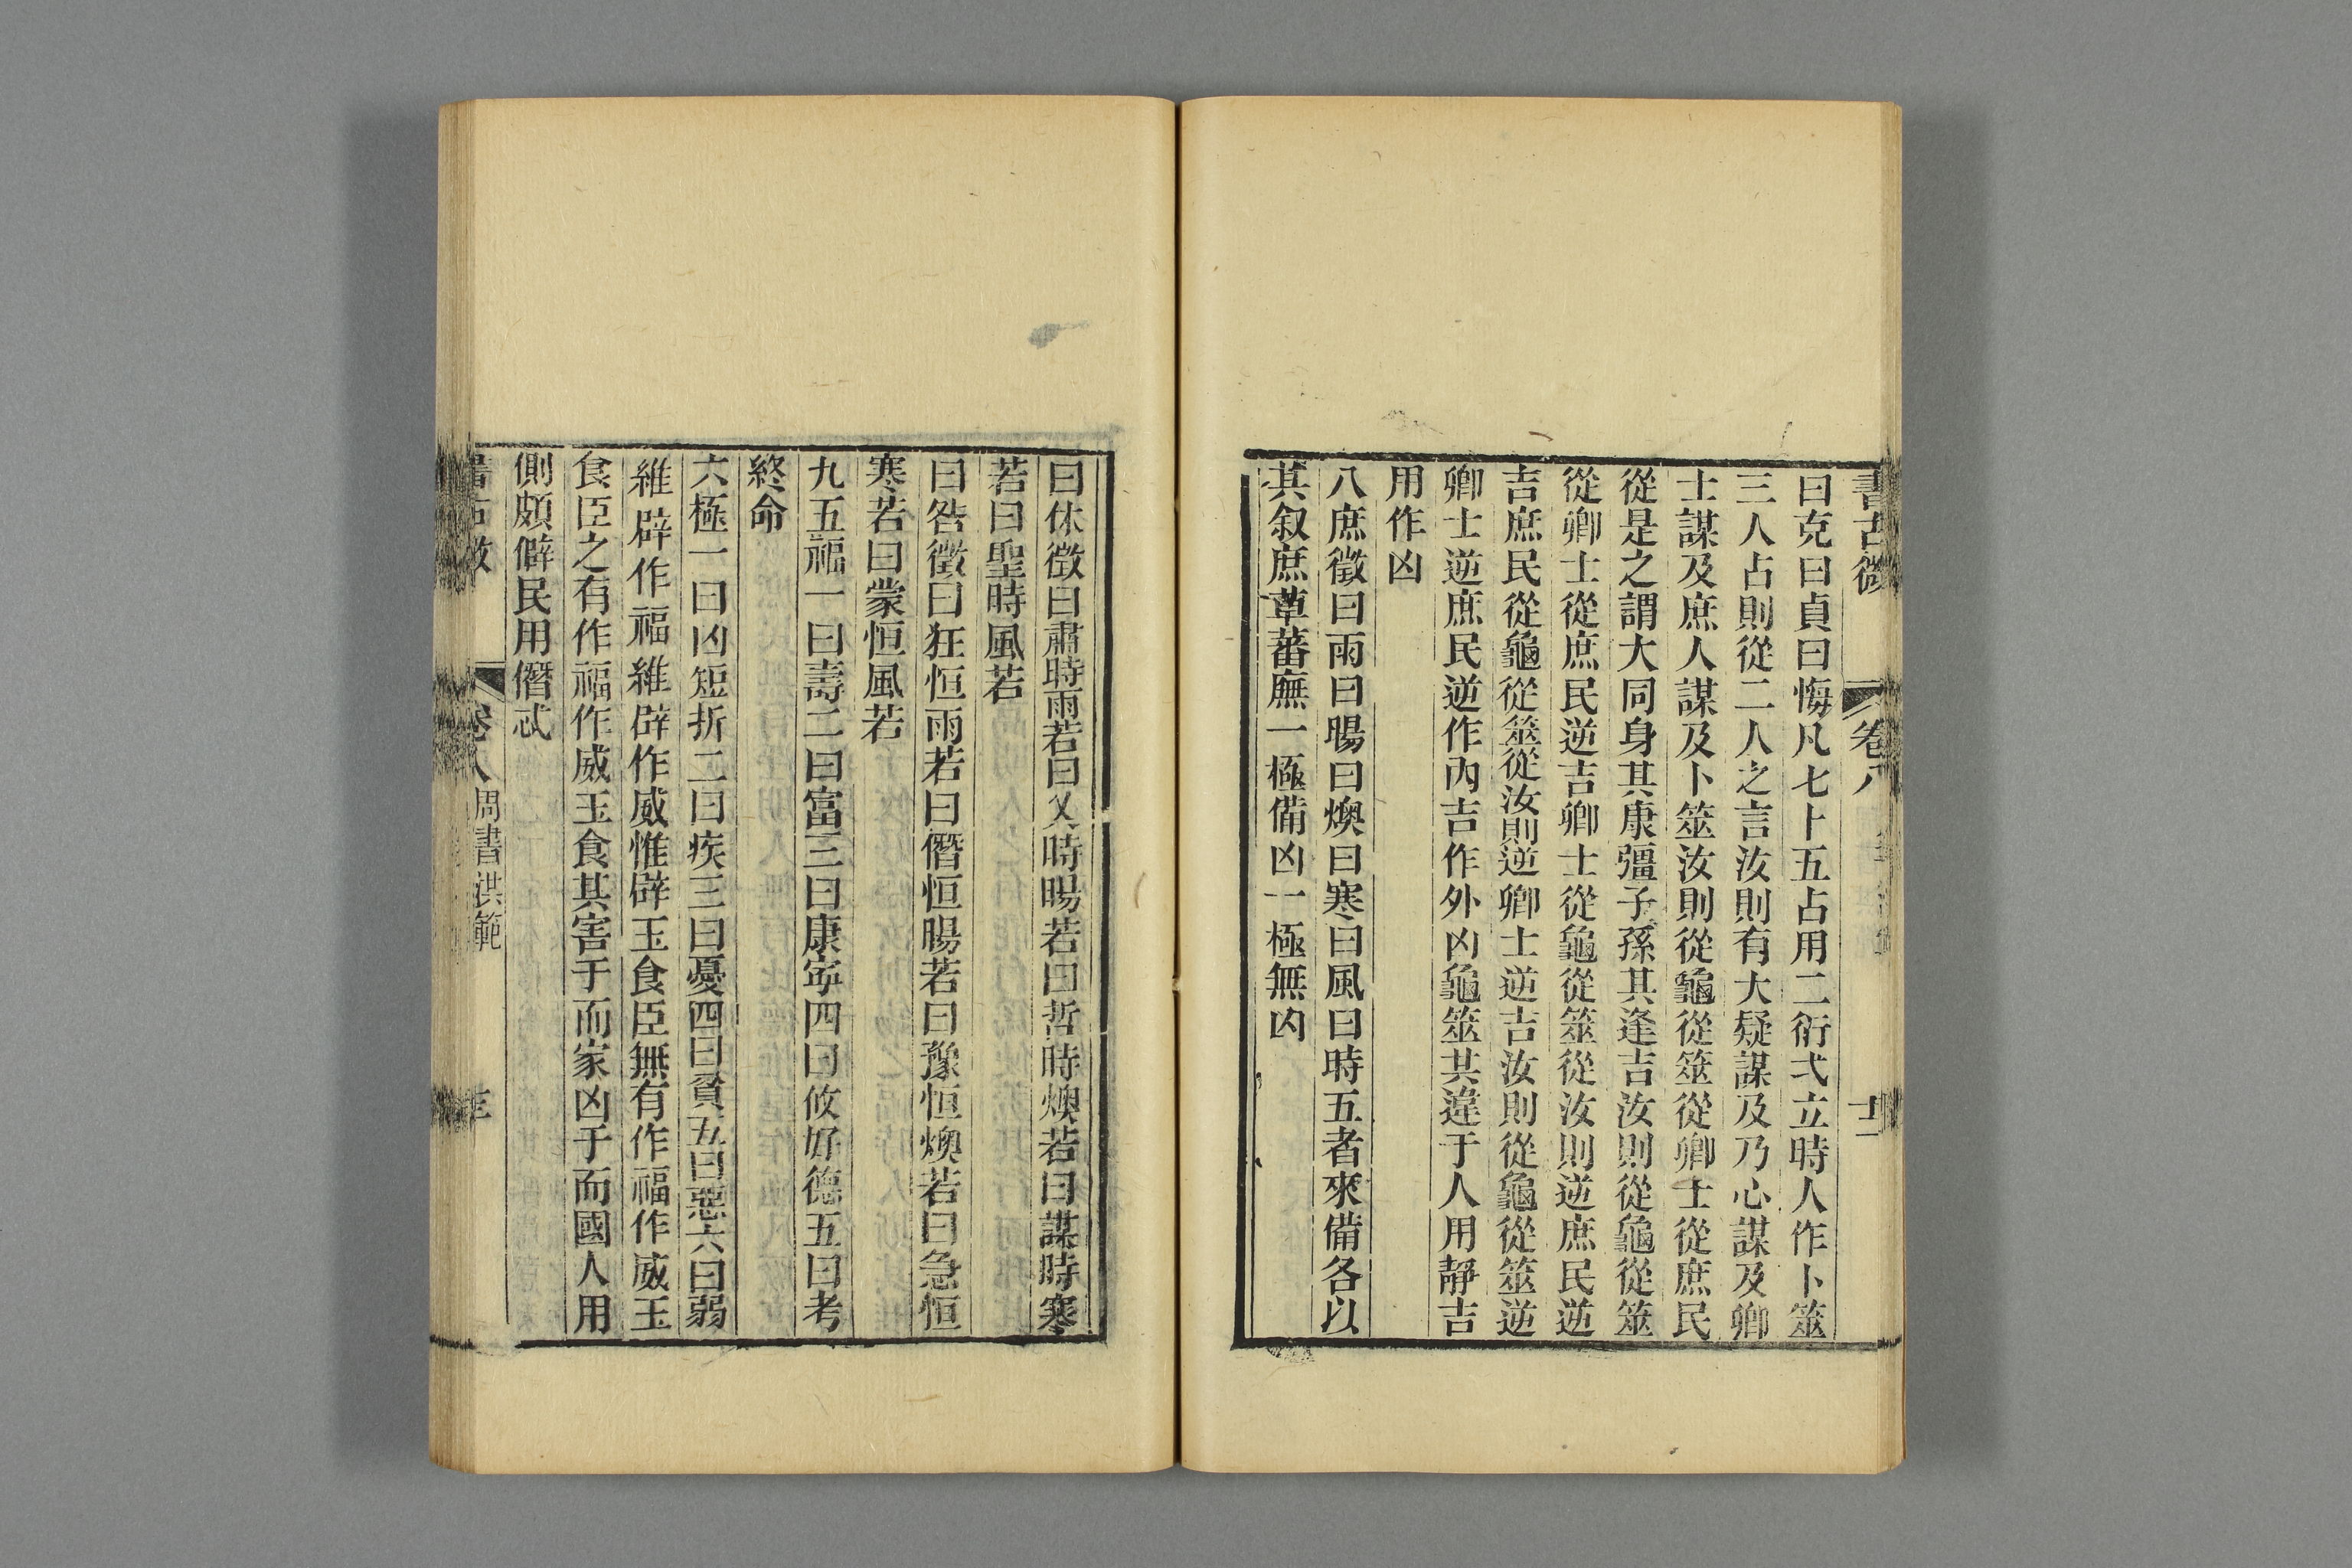 書古微 卷八 十二
曰克曰貞曰悔凡七卜五占用二衍弌立時人作卜筮
三人占則從二人之言汝則有大疑謀及乃心謀及卿
士謀及庶人謀及卜筮汝則從龜從筮從卿士從庶民
從是之謂大同身其康彊子孫其逢吉汝則從龜從筮
從卿士從庶民逆吉卿士從龜從筮從汝則逆庶民逆
吉庶民從龜從筮從汝則逆卿士逆吉汝則從龜從筮逆
卿士逆庶民逆作內吉作外凶龜筮共違于人用靜吉
用作凶
八庶徵曰雨曰暘曰燠曰寒曰風曰時五者來備各以
其叙庶草蕃廡一極備凶一極無凶
曰休徵曰肅時雨若曰乂時暘若曰哲時燠若曰謀時寒
若曰聖時風若
曰咎徵曰狂恒雨若曰僭恒暘若曰豫恒燠若曰急恒
寒若曰蒙恒風若
九五福一曰壽二曰富三曰康寧四曰攸好德五曰考
終命
六極一曰凶短折二曰疾三曰憂四曰貧五曰惡六曰弱
維辟作福維辟作威惟辟玉食臣無有作福作威玉
食臣之有作福作威玉食其害于而家凶于而國人用
側頗僻民用僭忒
書古微 卷八 周書洪範